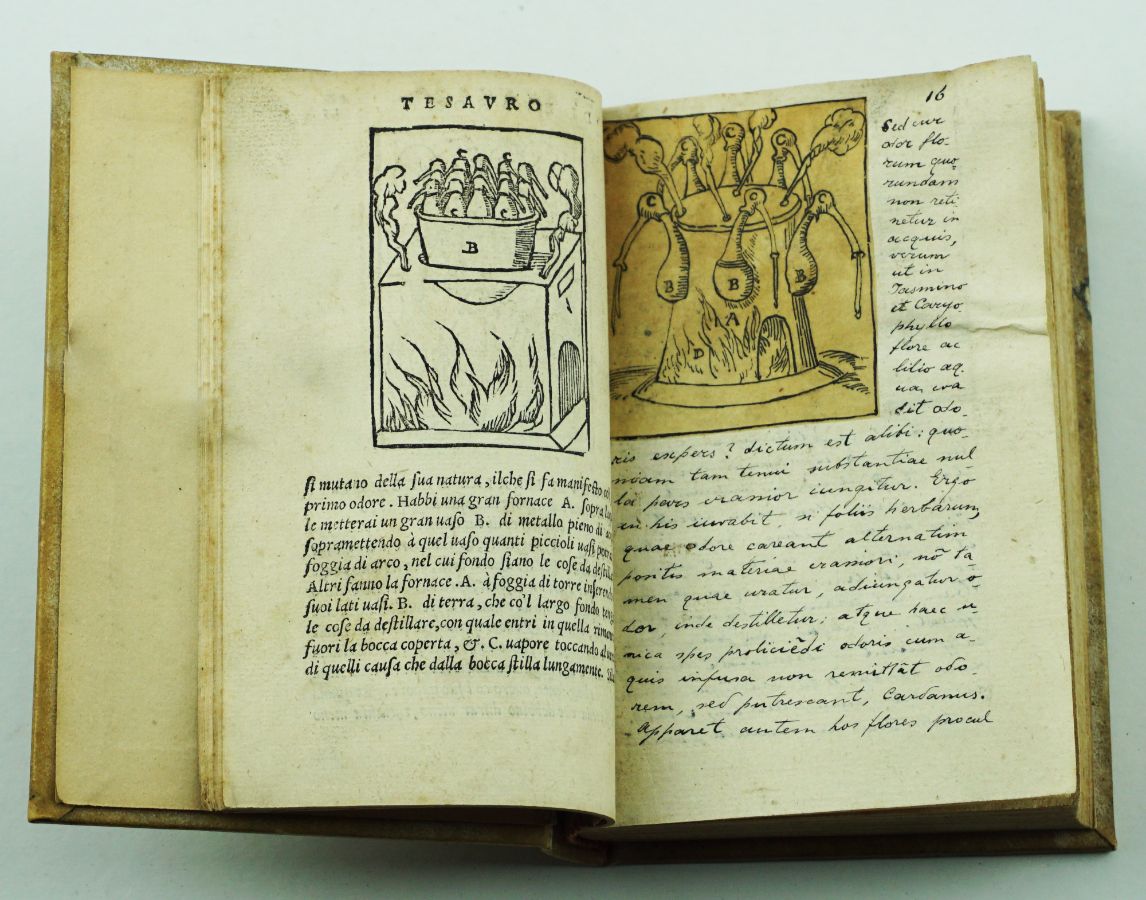 TESAVRO
B
ſi mutano della ſua natura, ilche ſi fa manifeſto col
primo odore. Habbi una gran fornace A. ſopra
le metterai un gran uaſo B. di metallo pieno di
ſopramettendo à quel uaſo quanti piccioli uaſi
foggia di arco, nel cui fondo ſiano le coſe da deſtilla
Altri fanno la fornace .A. à foggia di torre inſerend
ſuoi lati uaſi. B. di terra, che co'l largo fondo
le coſe da deſtillare, con quale entri in quella
fuori la bocca coperta, &. C. uapore toccando
di quelli cauſa che dalla bocca ſtilla lungamente.
16
C C C C
C C C
B B B
A
D
Sed cur
odor flo-
rum quo-
rundam
non reti
netur in
acquis,
verum
ut in
Jasmino
et Caryo
phyllo
flore ac
lilio aq.
ua, eva
dit odo-
ris expers? dictum est alibi: quo-
niam tam tenui substantiae nul
la pars crassior iungitur. Ergo
in his iuvabit, si foliis herbarum,
quae odore careant alternatim
positis materiae crassiori, nō ta
men quae uratur, adiungatur o-
dor, inde destilletur: atque haec u-
nica spes proliciēdi odoris cum a-
quis infusa non remittāt odo-
rem, sed putrescant, Cardanus.
Apparet autem hos flores procul